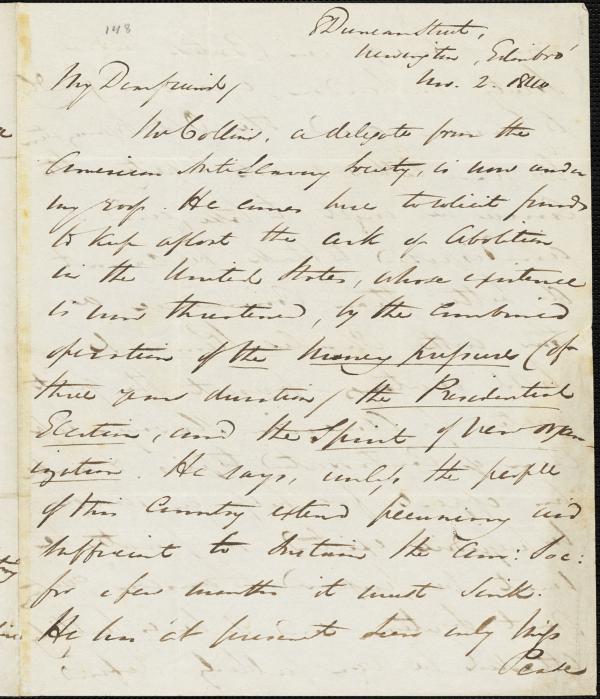 148
8 Duncan Street,
Newington, Edinbro'
Nov. 2. 1840
My Dear friend,
Mr Collins, a delegate from the
American Anti Slavery Society, is now under
my roof. He comes here to solicit funds
to keep afloat the ark of Abolition
in the United States, whose existence
is now threatened, by the combined
operation of the money pressure (of
three years duration) the Presidential
Election, and the Spirit of new organ
ization. He says, unless the people
of this Country extend pecuniary aid
sufficient to sustain the Am: Soc:
for a few months it must sink.
He has at present seen only Miss
Pease